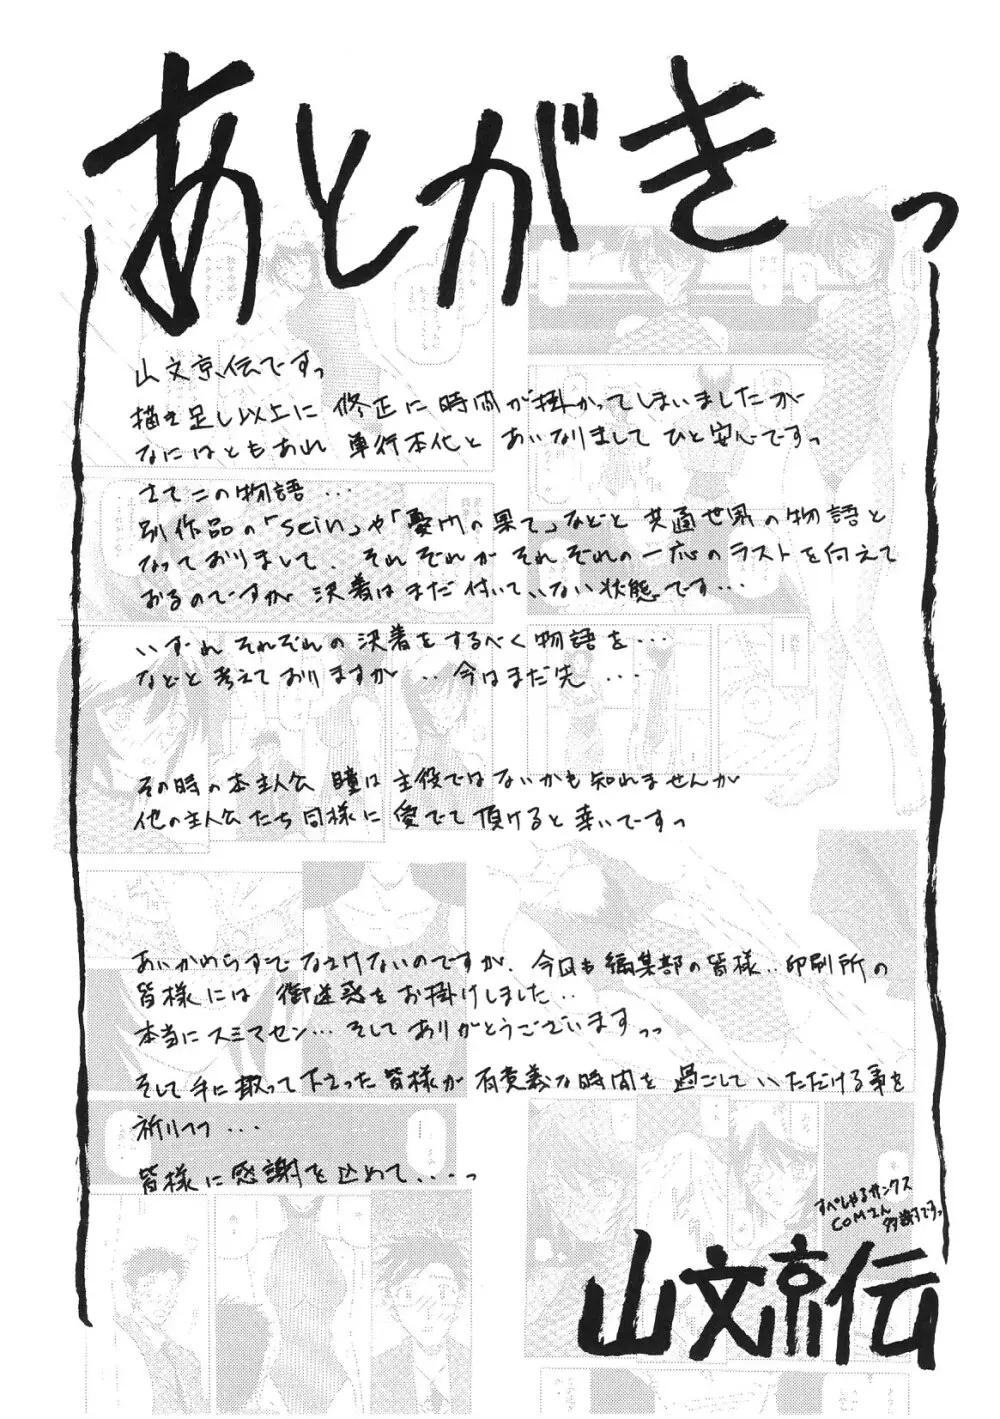 あとがきっ
山文京伝ですっ
描き足し以上に 修正に時間が掛かってしまいましたが
なにはともあれ 単行本化と あいなりまして ひと安心ですっ
さてこの物語…
別作品の「sein」や「憂内の果て」などと 共通世界の物語と
なっておりまして、それぞれが それぞれの一応のラストを向えて
おるのですが 決着はまだ付いていない状態です…
いずれ それぞれの決着をするべく物語を…
などと 考えておりますが‥今はまだ先…
その時の本主人公 瞳は主役ではないかも知れませんが
他の主人公たち同様に 愛でて頂けると幸いですっ
あいかわらずで なさけないのですが、今回も編集部の皆様‥印刷所の
皆様には 御迷惑をお掛けしました‥
本当にスミマセン…そして ありがとうございますっっ
そして手に取って下さった皆様が 有意義な時間を 過ごしていただける事を
祈りつつ…
皆様に感謝を込めて...っ
すぺしゃるサンクス
COMさん
多謝ですっ
山文京伝